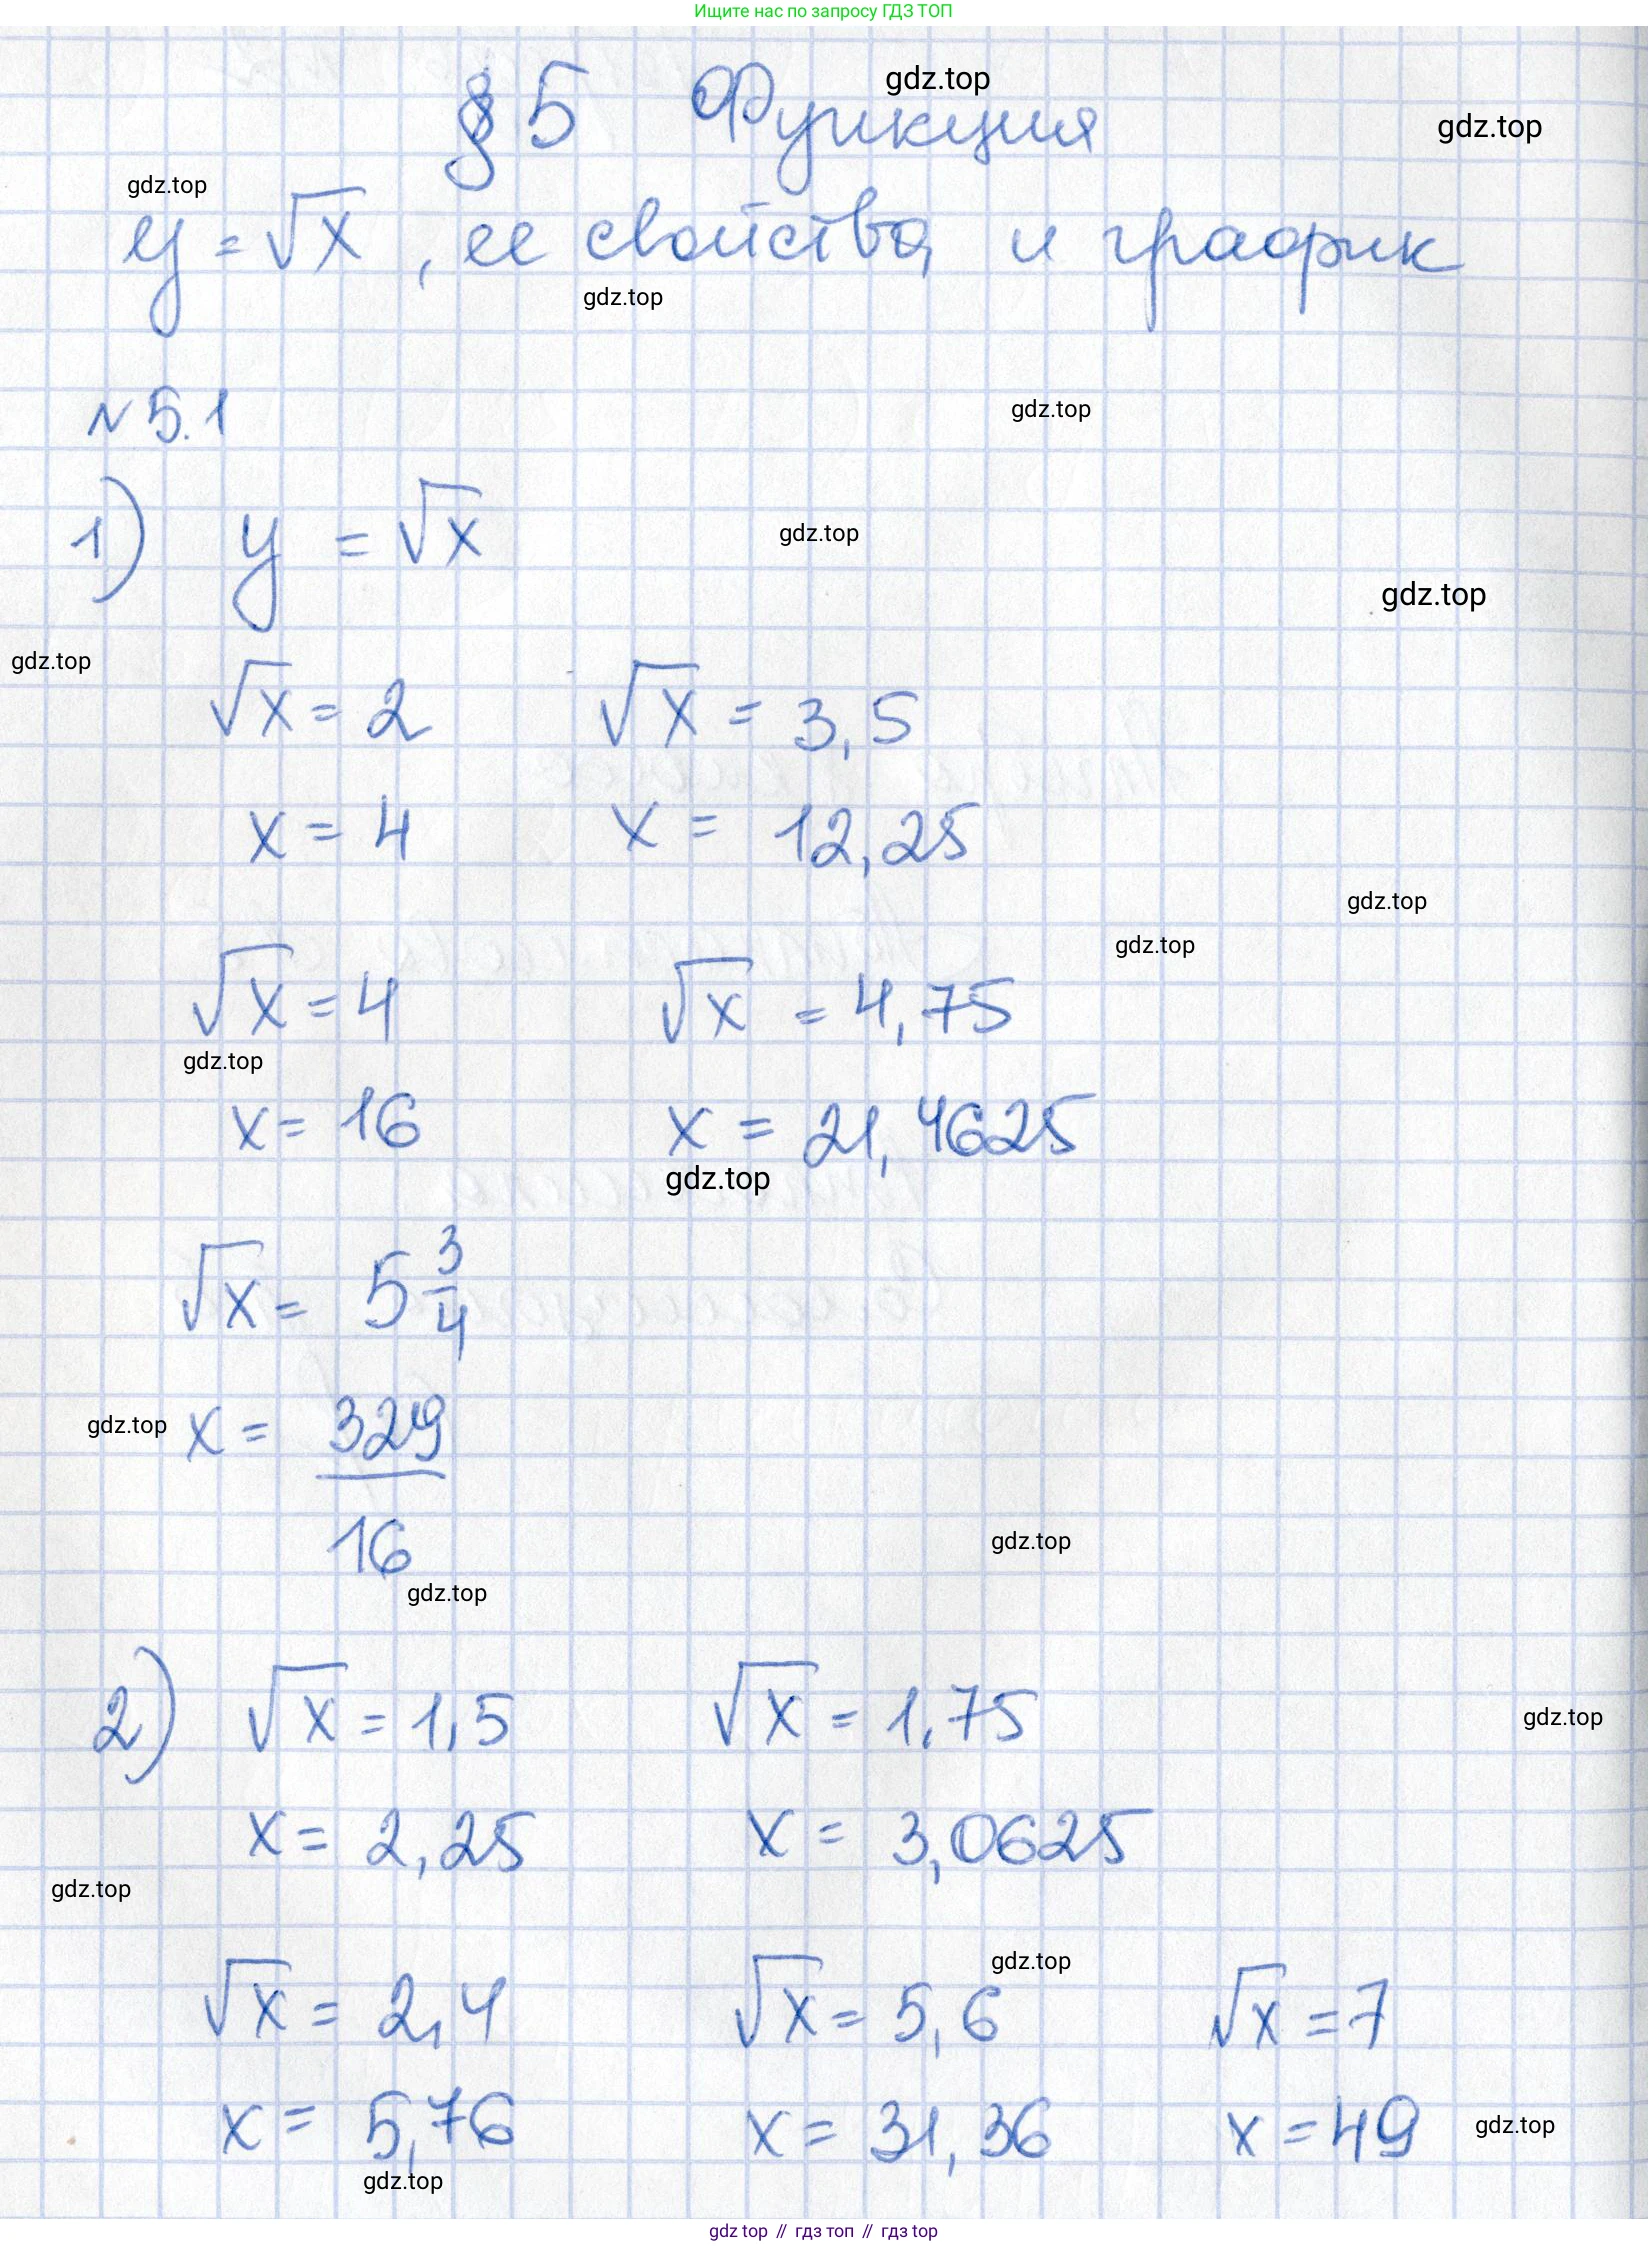 Ищите нас по запросу ГДЗ ТОП
§ 5 Функция
gdz.top
gdz.top
gdz.top
y = √x , ее свойства и график
gdz.top
№ 5.1
gdz.top
1) y = √x
gdz.top
gdz.top
gdz.top
√x = 2 √x = 3,5
x = 4 x = 12,25
gdz.top
gdz.top
√x = 4 √x = 4,75
gdz.top
x = 16 x = 21,4625
gdz.top
√x = 5 3/4
gdz.top
x = 329/16
gdz.top
gdz.top
2) √x = 1,5 √x = 1,75
gdz.top
x = 2,25 x = 3,0625
gdz.top
gdz.top
√x = 2,4 √x = 5,6 √x = 7
x = 5,76 x = 31,36 x = 49
gdz.top
gdz.top
gdz top // гдз топ // гдз top